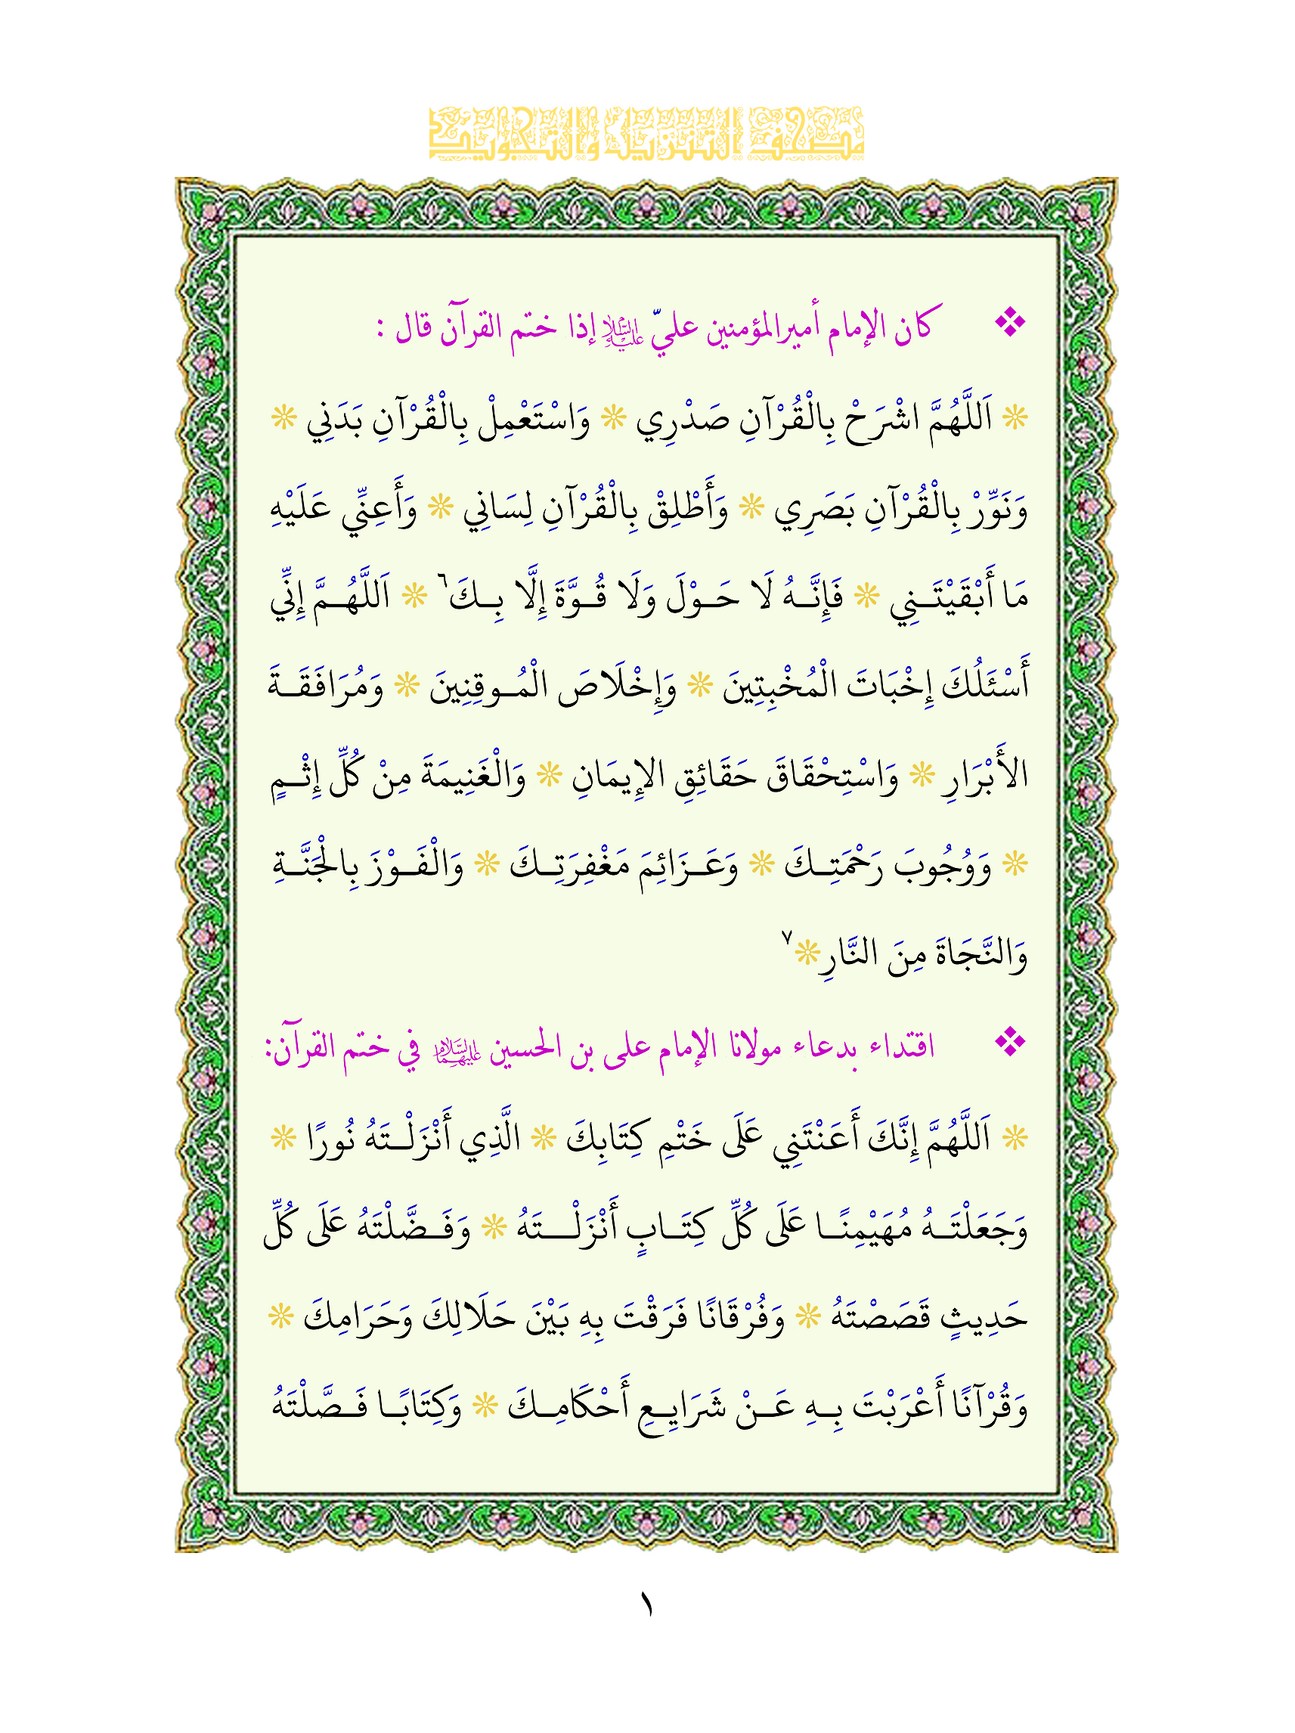 ❖ كان الإمام أميرالمؤمنين عليّ عليه السلام إذا ختم القرآن قال :
❊ اَللَّهُمَّ اشْرَحْ بِالْقُرْآنِ صَدْرِي ❊ وَاسْتَعْمِلْ بِالْقُرْآنِ بَدَنِي ❊
وَنَوِّرْ بِالْقُرْآنِ بَصَرِي ❊ وَأَطْلِقْ بِالْقُرْآنِ لِسَانِي ❊ وَأَعِنِّي عَلَيْهِ
مَا أَبْقَيْتَـنِي ❊ فَإِنَّـهُ لَا حَـوْلَ وَلَا قُـوَّةَ إِلَّا بِـكَ٦ ❊ اَللَّهُـمَّ إِنِّي
أَسْئَلُكَ إِخْبَاتَ الْمُخْبِتِينَ ❊ وَإِخْلَاصَ الْمُـوقِنِينَ ❊ وَمُرَافَقَـةَ
الأَبْرَارِ ❊ وَاسْتِحْقَاقَ حَقَائِقِ الإِيمَانِ ❊ وَالْغَنِيمَةَ مِنْ كُلِّ إِثْـمٍ
❊ وَوُجُوبَ رَحْمَتِـكَ ❊ وَعَـزَائِمَ مَغْفِرَتِـكَ ❊ وَالْفَـوْزَ بِالْجَنَّـةِ
وَالنَّجَاةَ مِنَ النَّارِ❊٧
❖ اقتداء بدعاء مولانا الإمام على بن الحسين عليهما السلام في ختم القرآن:
❊ اَللَّهُمَّ إِنَّكَ أَعَنْتَنِي عَلَى خَتْمِ كِتَابِكَ ❊ الَّذِي أَنْزَلْـتَهُ نُورًا ❊
وَجَعَلْتَـهُ مُهَيْمِنًـا عَلَى كُلِّ كِتَـابٍ أَنْزَلْـــتَهُ ❊ وَفَـضَّلْتَهُ عَلَى كُلِّ
حَدِيثٍ قَصَصْتَهُ ❊ وَفُرْقَانًا فَرَقْتَ بِهِ بَيْنَ حَلَالِكَ وَحَرَامِكَ ❊
وَقُرْآنًا أَعْرَبْتَ بِـهِ عَـنْ شَرَايِـعِ أَحْكَامِـكَ ❊ وَكِتَابًـا فَـصَّلْتَهُ
١